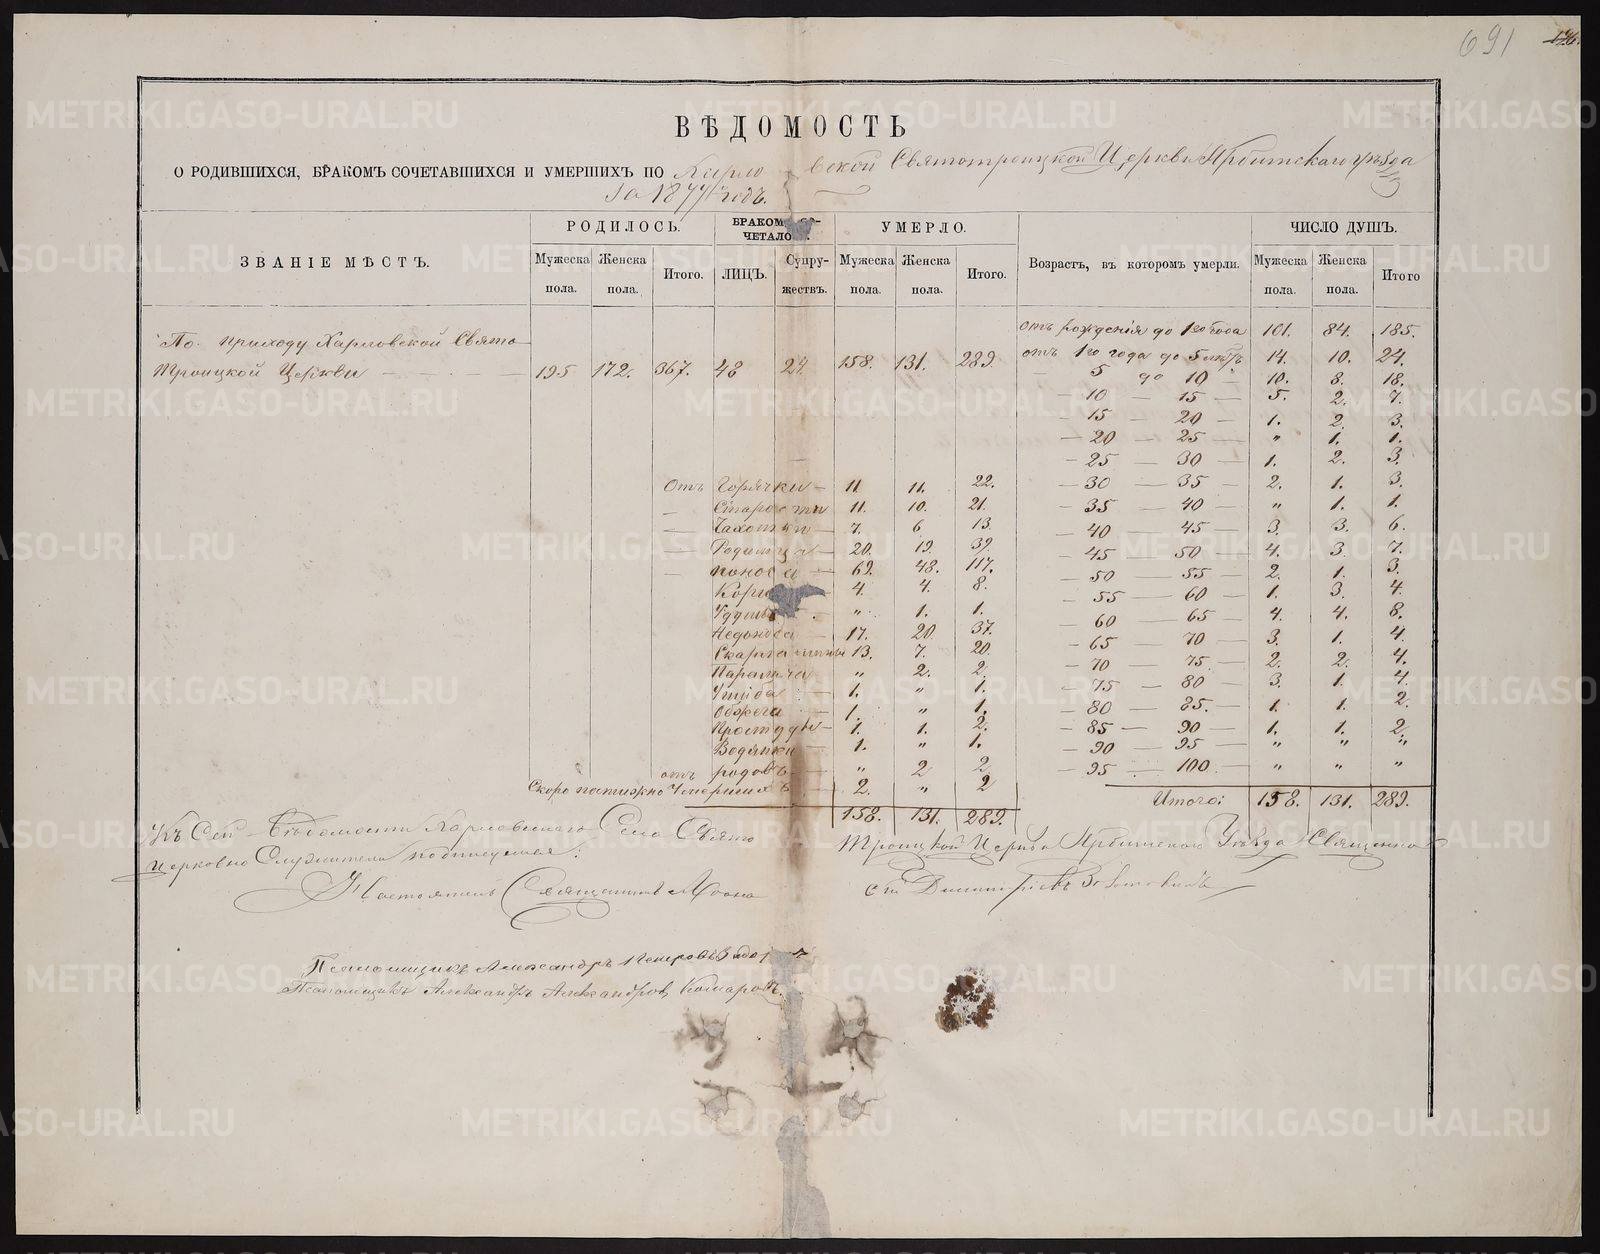 691
176.
ВѢДОМОСТЬ
О РОДИВШИХСЯ, БРАКОМЪ СОЧЕТАВШИХСЯ И УМЕРШИХЪ ПО Харловской Святотроицкой Церкви Ирбитскаго уѣзда
За 1877 годъ.
ЗВАНІЕ МѢСТЪ. РОДИЛОСЬ. БРАКОМЪ СО-ЧЕТАЛО УМЕРЛО. Возрастъ, въ которомъ умерли. ЧИСЛО ДУШЪ.
Мужеска пола. Женска пола. Итого. ЛИЦЪ. Супру-жествъ. Мужеска пола. Женска пола. Итого. Мужеска пола. Женска пола. Итого
По приходу Харловской Свято отъ рожденія до 1го года 101. 84. 185.
Троицкой Церкви 195 172. 367. 48 24. 158. 131. 289. отъ 1го года до 5 лѣтъ 14. 10. 24.
5 до 10 — 10. 8. 18.
— 10 — 15 — 5. 2. 7.
— 15 — 20 — 1. 2. 3.
— 20 — 25 — „ 1. 1.
— 25 — 30 — 1. 2. 3.
Отъ Горячки — 11 11. 22. — 30 — 35 — 2. 1. 3.
— Старости 11. 10. 21. — 35 — 40 — „ 1. 1.
— Чахотки — 7. 6 13. — 40 — 45 — 3. 3. 6.
— Родимца — 20. 19. 39. — 45 — 50 — 4. 3. 7.
— поноса — 69. 48. 117. — 50 — 55 — 2. 1. 3.
Корі — 4. 4. 8. — 55 — 60 — 1. 3. 4.
„ 1. 1. — 60 — 65 — 4. 4. 8.
17. 20. 37. — 65 — 70 — 3. 1. 4.
Скарлатины 13. 7. 20. — 70 — 75. — 2. 2. 4.
Паралича „ 2. 2. — 75 — 80 — 3. 1. 4.
Ушиба — 1. „ 1. — 80 — 85. — 1. 1. 2.
Обжега — 1. „ 1. — 85 — 90 — 1. 1. 2.
Простуды — 1. 1. 2. — 90 — 95 — „ „ „
Водянки — 1. „ 1. — 95 — 100. — „ „ „
отъ родовъ — „ 2 2
Скоропостижно Умершихъ — 2. „ 2 Итого: 158. 131. 289.
158. 131. 289.
Къ Сей Вѣдомости Харловскаго Села Свято Троицкой Церкви Ирбитскаго Уѣзда Священно
церковно Служители подписуемся:
Настоятель Священникъ
Псаломщикъ Александръ Петровъ
Псаломщикъ Александръ Александровъ Комаровъ.
METRIKI.GASO-URAL.RU